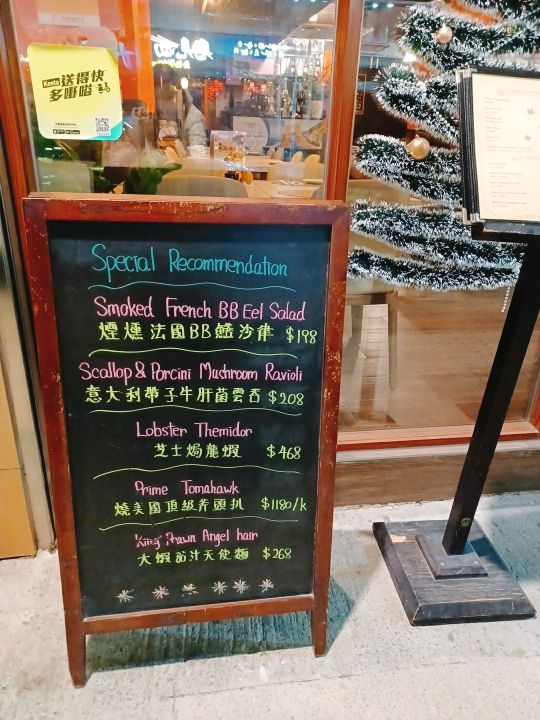 Keeta 送得快
多嘢嗒
Special Recommendation
Smoked French BB Eel Salad
煙燻法國BB鱔沙律 $198
Scallop & Porcini Mushroom Ravioli
意大利帶子牛肝菌雲吞 $208
Lobster Themidor
芝士焗龍蝦 $468
Prime Tomahawk
燒美國頂級斧頭扒 $1180/k
King Prawn Angel hair
大蝦茄汁天使麵 $268